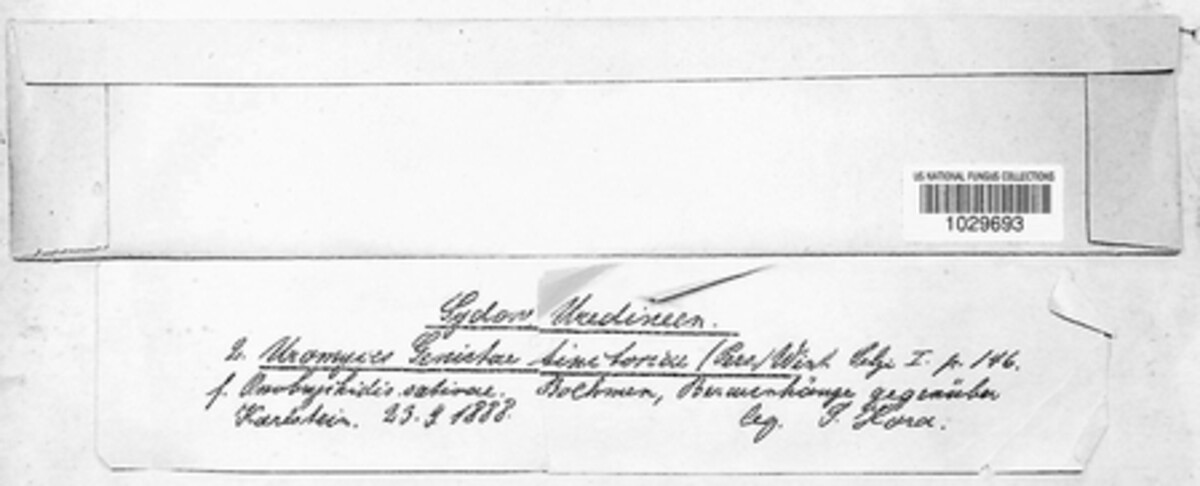 US NATIONAL FUNGUS COLLECTIONS
1029693
Sydow Uredineen.
2. Uromyces Genistae tinctoriae (Pers.) Wint. Pilze I. p. 146.
f. Onobrychidis sativae. Boehmen, gegenüber
Karlstein. 23. 9 1888. leg. P. Hora.